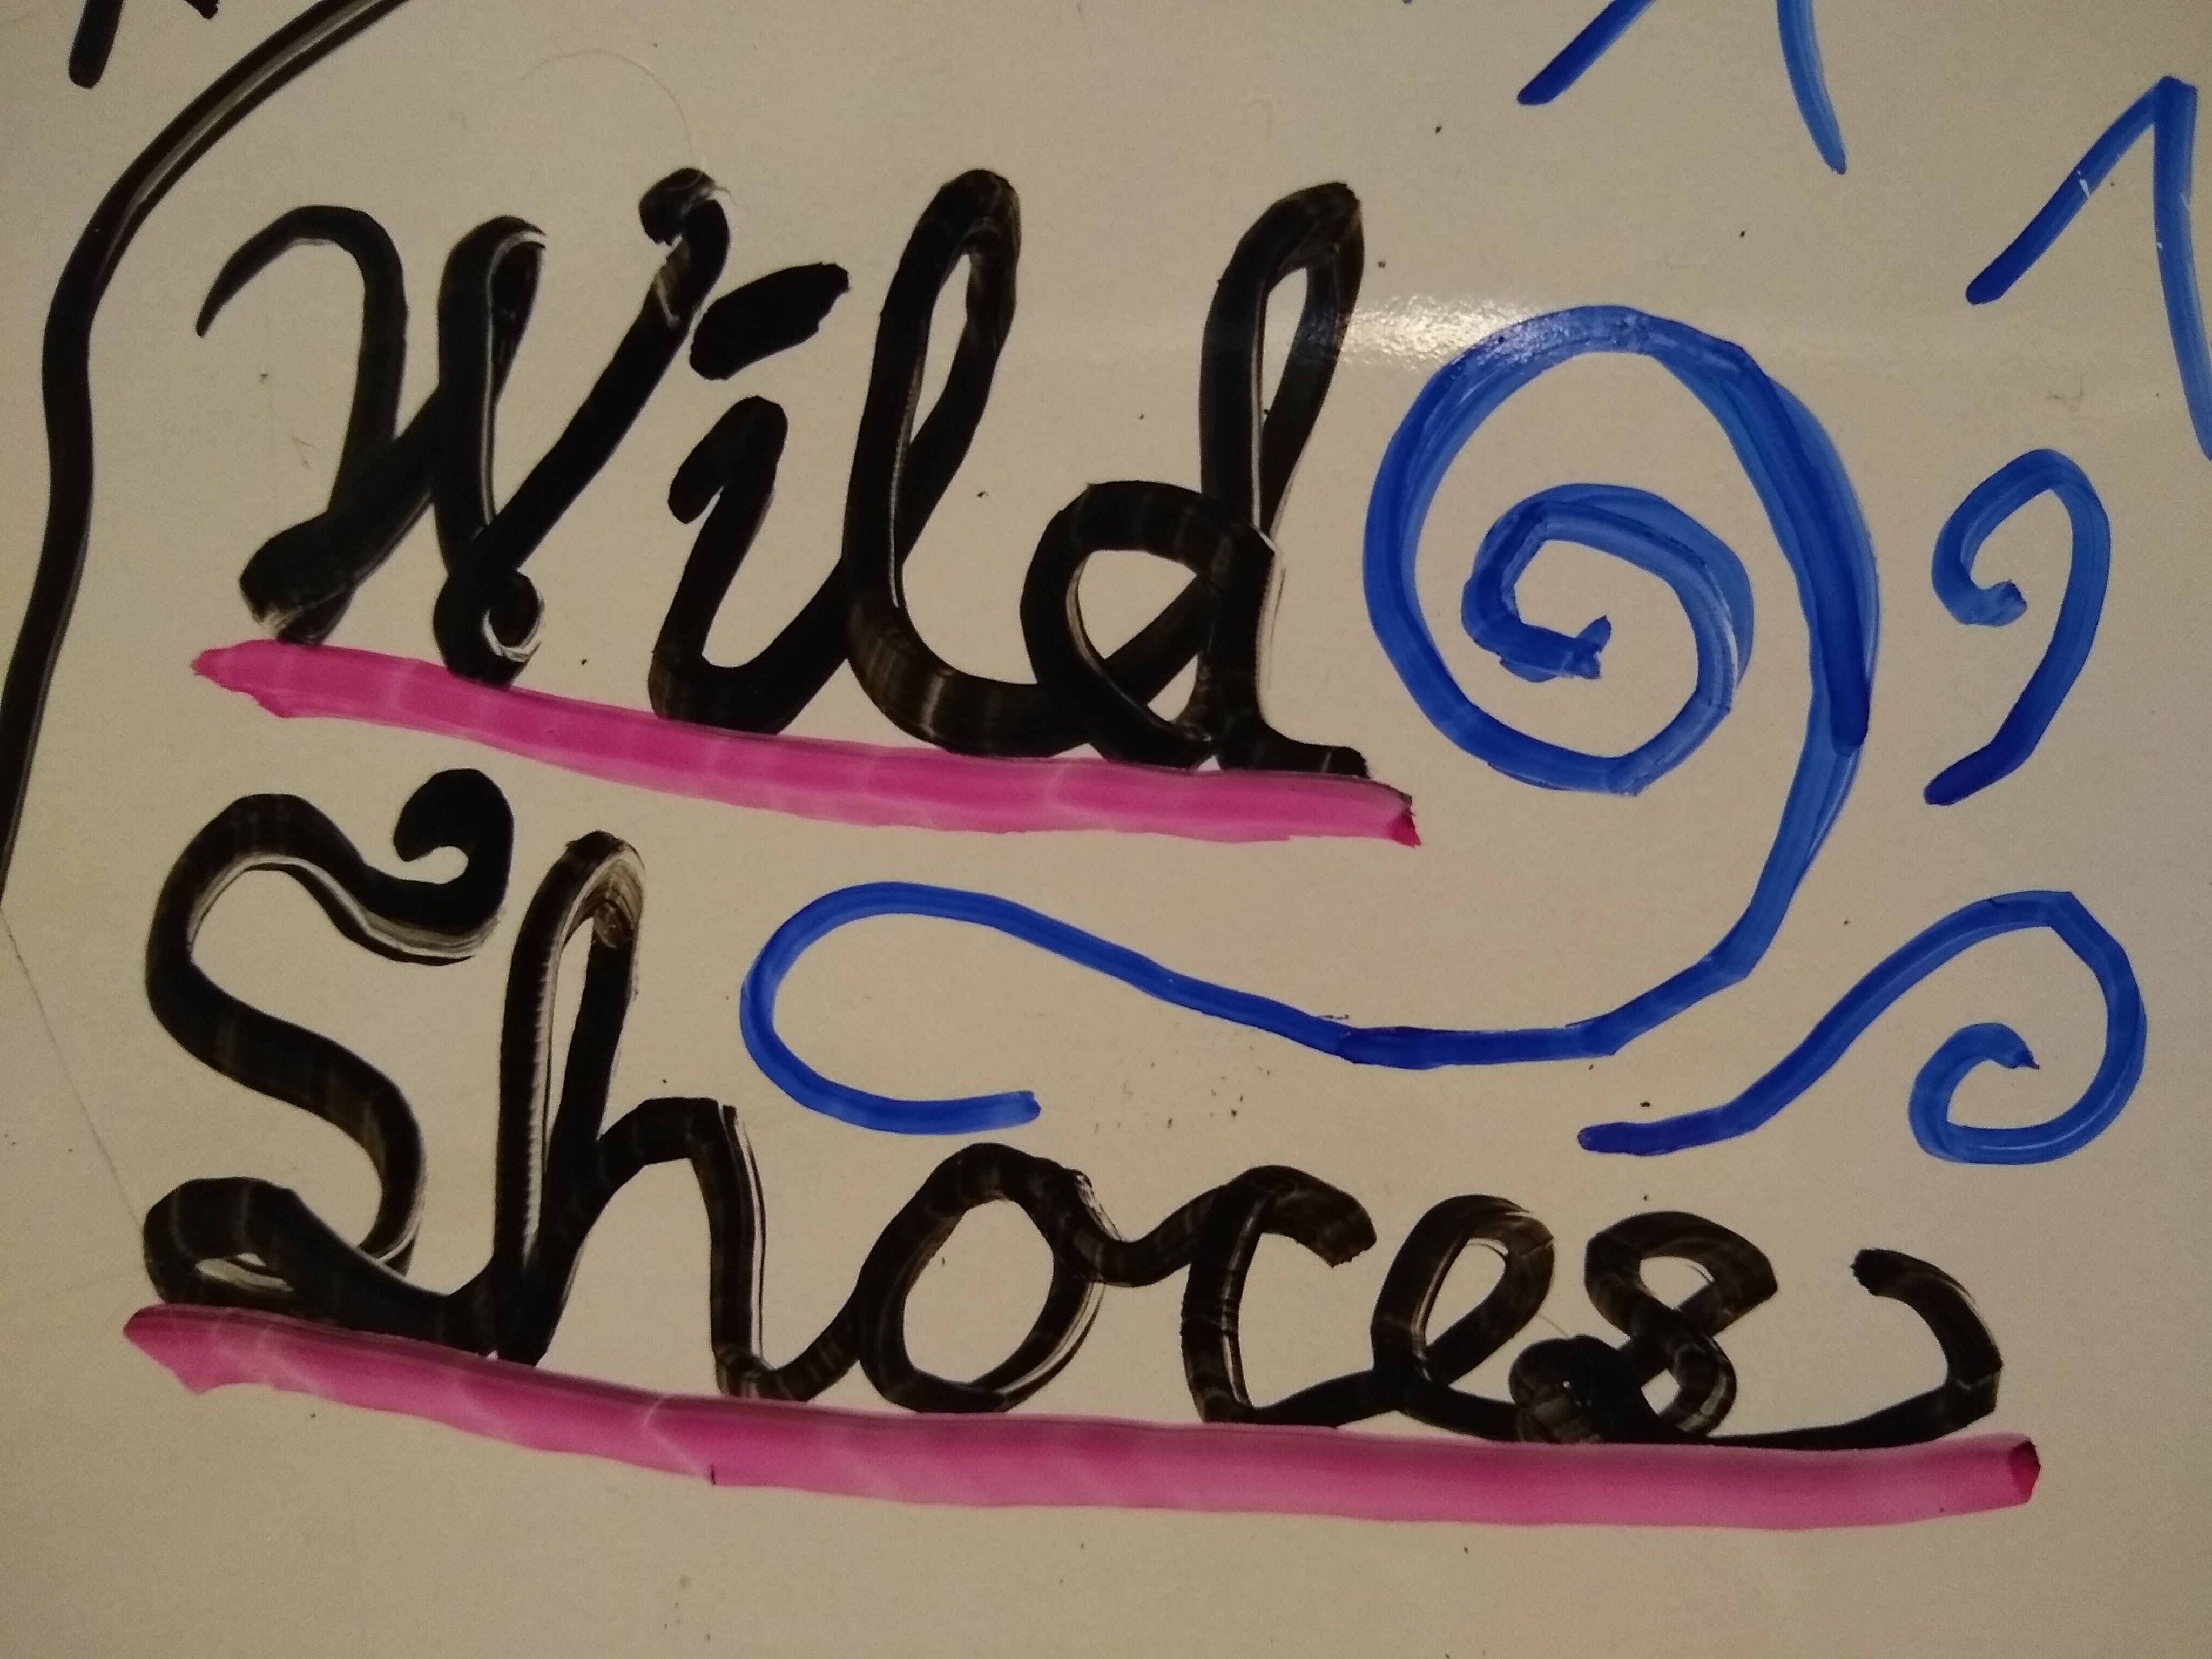 Wild
Shores